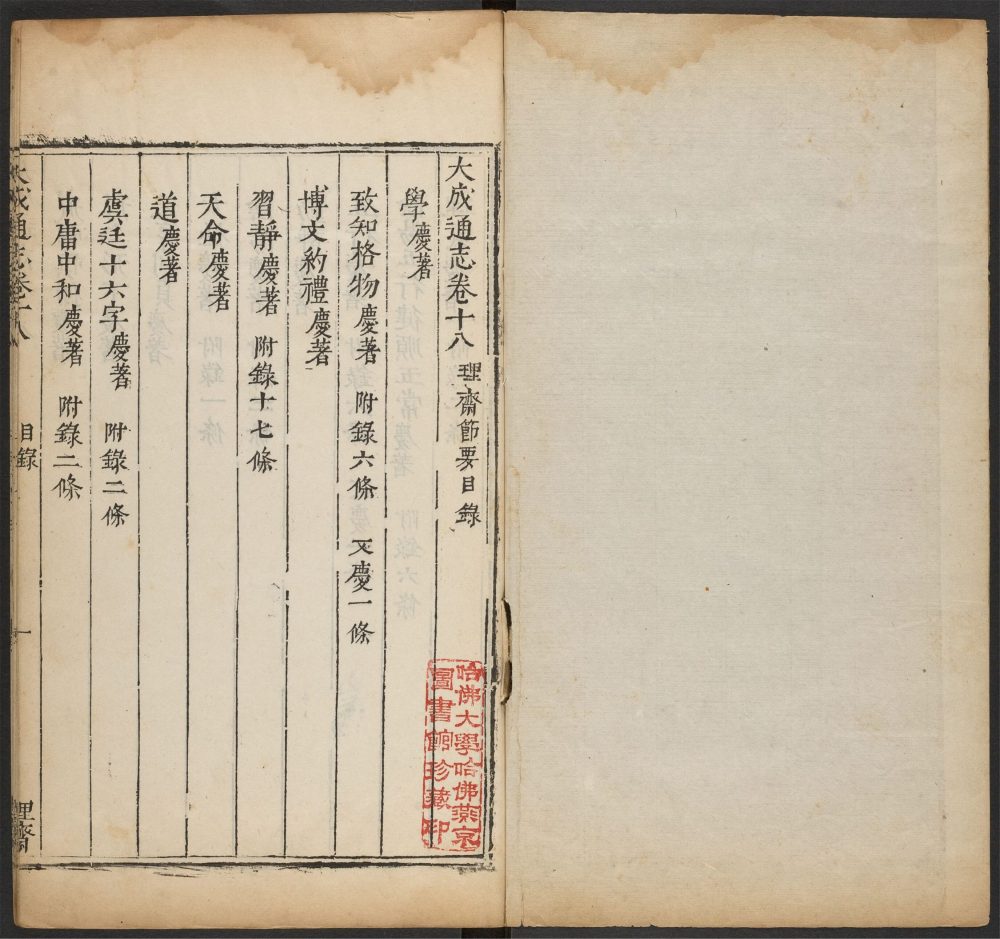 大成通志卷十八 理齋節要目錄
學慶著
致知格物慶著 附錄六條 又慶一條
博文約禮慶著
習靜慶著 附錄十七條
天命慶著
道慶著
虞廷十六字慶著 附錄二條
中庸中和慶著 附錄二條
大成通志卷十八 目錄 一 理齋
哈佛大學哈佛燕京
圖書館珍藏印